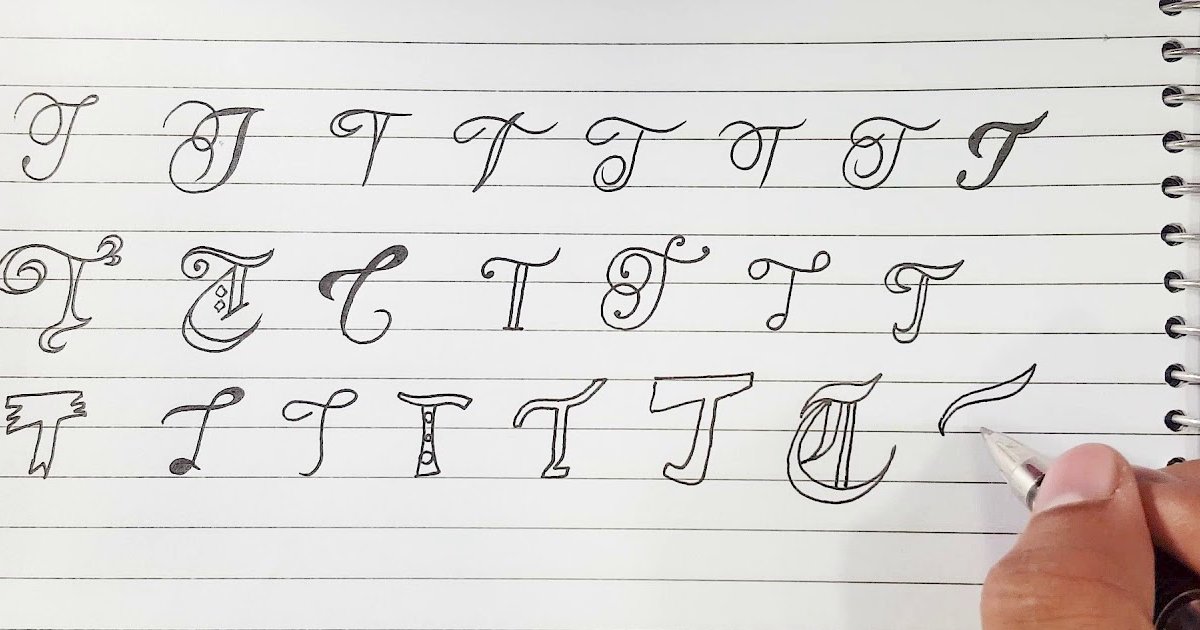 T T T T T T T T
T T T T T T T
T T T T T T T